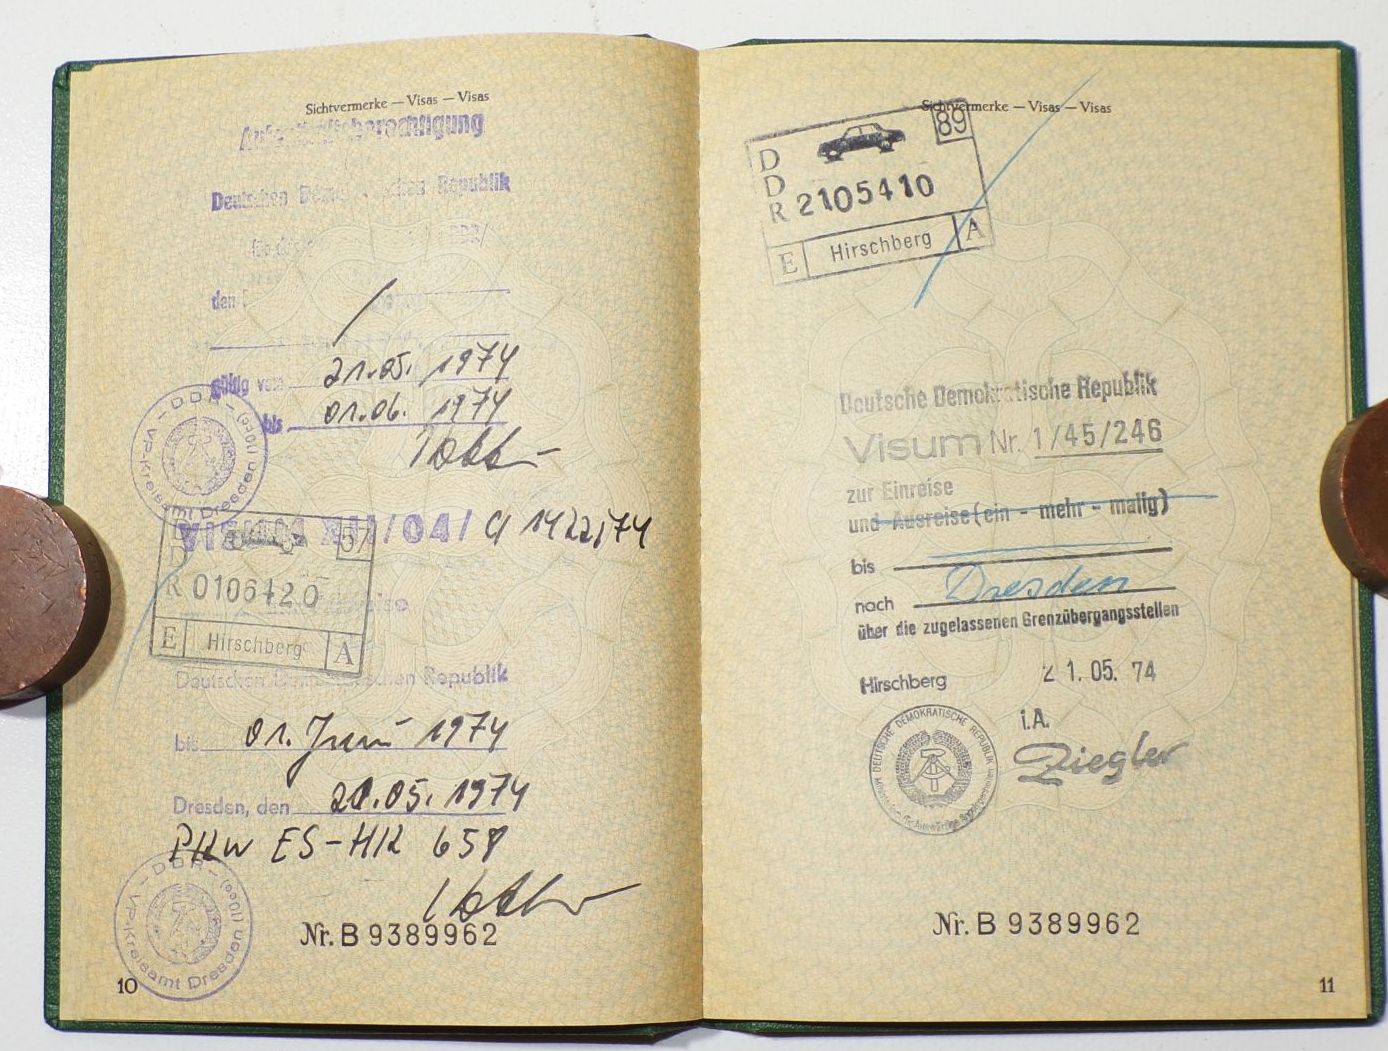 Sichtvermerke — Visas — Visas
Aufenthaltsberechtigung
Deutschen Demokratischen Republik
den
gültig vom 21.05. 1974
bis 01.06. 1974
DDR
VP-Kreisamt Dresden
VISUM XII/04/
57
D
D
R 0106420
E Hirschberg A
Deutschen Demokratischen Republik
bis 01. Juni 1974
Dresden, den 21.05. 1974
PKW ES-HR 658
DDR
VP-Kreisamt Dresden
Nr. B 9389962
10
Sichtvermerke — Visas — Visas
89
D
D
R 2105410
E Hirschberg A
Deutsche Demokratische Republik
Visum Nr. 1/45/246
zur Einreise
und Ausreise (ein - mehr - malig)
bis
nach Dresden
über die zugelassenen Grenzübergangsstellen
Hirschberg 21.05. 74
i.A.
Ziegler
DEUTSCHE DEMOKRATISCHE REPUBLIK
Nr. B 9389962
11